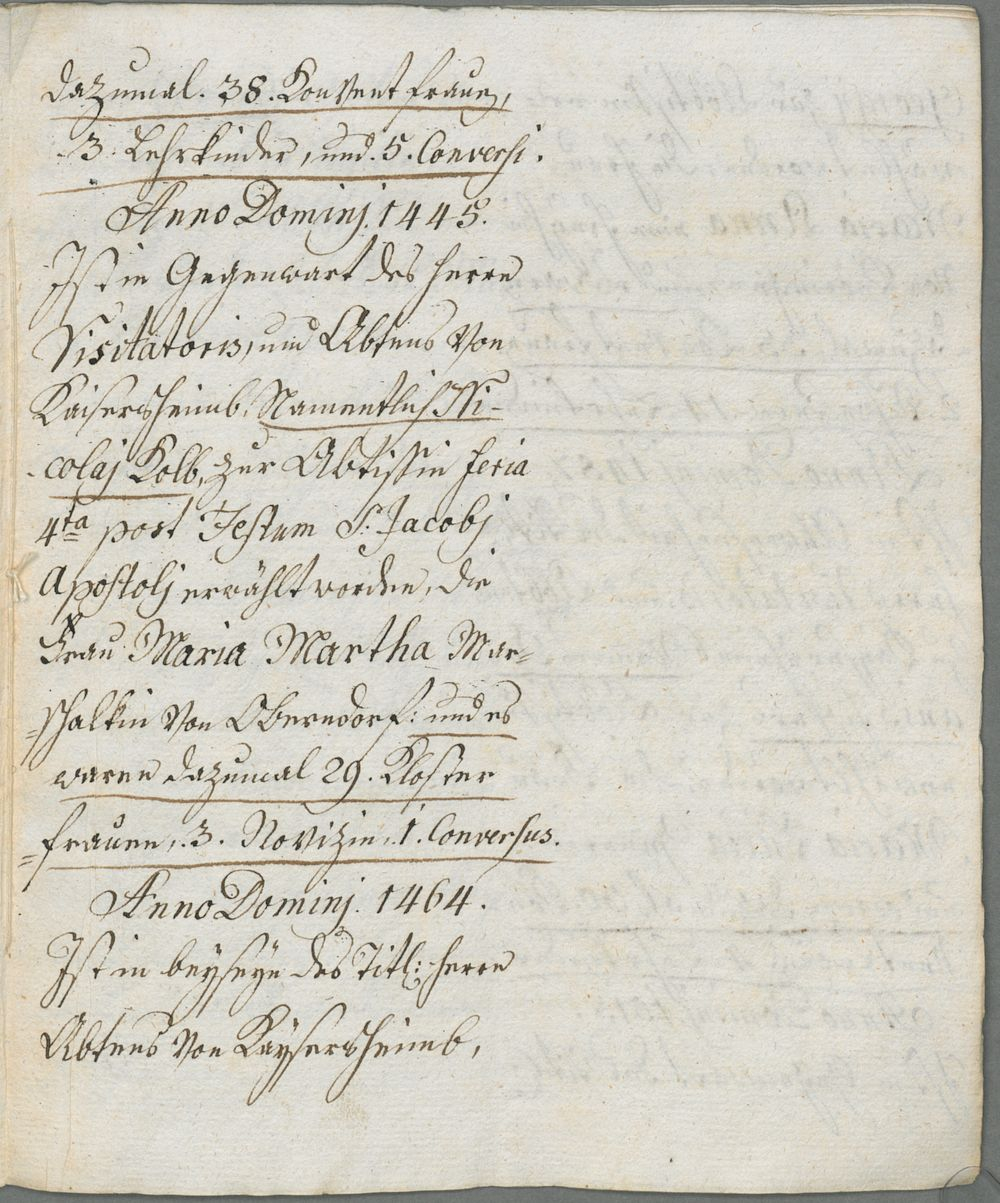 dazumal. 38. Konvent frauen,
3. Lehrkinder, und. 5. Conversi.
Anno Dominj. 1445.
Ist in Gegenwart des Herrn
Visitatoris, und Abtens Von
Kaisersheimb, Namentlich Ni-
colaj Kolb, zur Abtissin feria
4ta post Festum S. Jacobj
Apostolj erwählt worden, die
Frau Maria Martha Mar=
=schalkin Von Oberndorf: und es
waren dazumal 29. Kloster
=frauen, 3. Novizin, 1. Conversus.
Anno Dominj. 1464.
Ist in beyseyn des Titl: Herrn
Abtens Von Kaysersheimb,